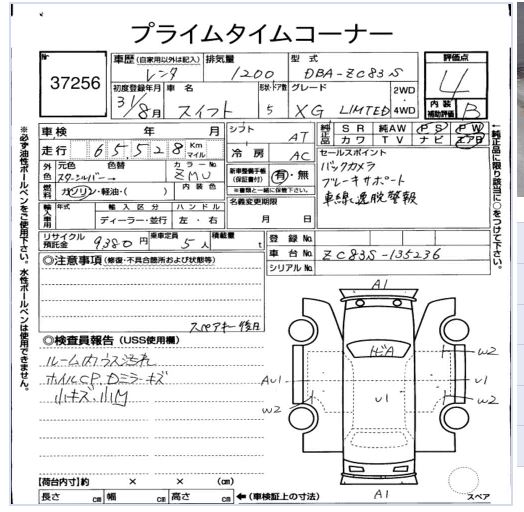 プライムタイムコーナー
No
37256
車歴 (自家用以外は記入)
レンタ
排気量
1200
型式
DBA-ZC83S
評価点
4
初度登録年月
31/8月
車名
スイフト
形状・ドア数
5
グレード
XG LIMITED
2WD
・
4WD
内装補助評価
B
車検 年 月
シフト
AT
純正品 SR 純AW PS PW
カワ TV ナビ エアB
走行 65,528 Km マイル
冷房
AC
セールスポイント
バックカメラ
ブレーキサポート
車線逸脱警報
外 元色 色替
スターシルバー→
カラーNo
ZMU
新車整備手帳(保証書付)
有・無
※書類と一緒に保管下さい。
燃料 ガソリン・軽油・( )
内装色
名義変更期限
月 日
輸入車用 年式 輸入区分 ハンドル
ディーラー・並行 左・右
リサイクル預託金 9380円
乗車定員 5人
積載量 t
登録No.
車台No. ZC83S-135236
シリアルNo.
◎注意事項 (修復・不具合箇所および状態等)
スペアキー後日
◎検査員報告 (USS使用欄)
ルーム内ウス汚れ
ホイルCP、Dミラーキズ
小キズ、小凹
A1
トビA
W2
W2
AU1
U1
U1
W2
W2
A1
スペア
【荷台内寸】約 × × (cm)
長さ cm 幅 cm 高さ cm ←(車検証上の寸法)
※必ず油性ボールペンをご使用下さい。水性ボールペンは使用できません。
←純正品に限り該当に○をつけて下さい。